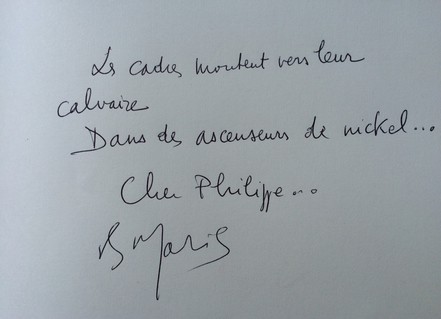 Les cadres montent vers leur
calvaire
Dans des ascenseurs de nickel...
Cher Philippe...
B Maris